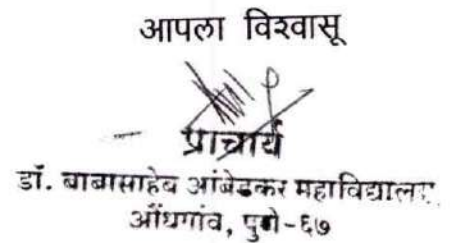 आपला विश्वासू
प्राचार्य
डॉ. बाबासाहेब आंबेडकर महाविद्यालय
औंधगांव, पुणे-६७